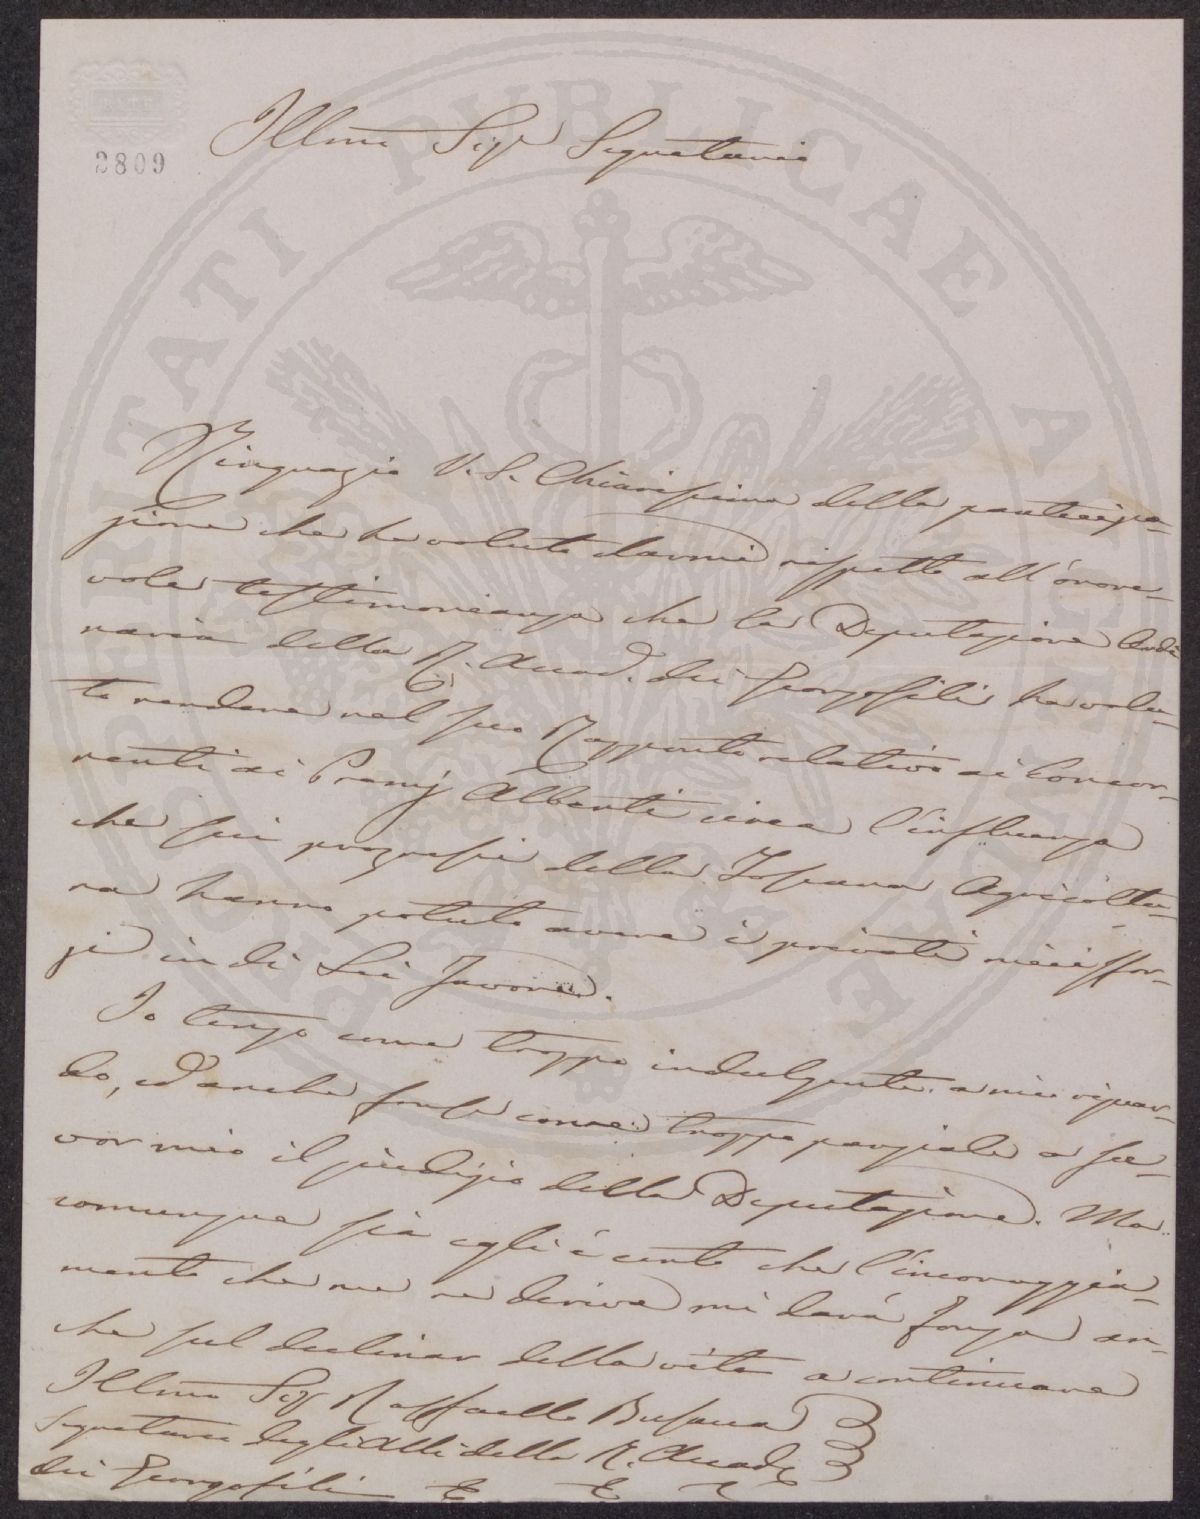 BATH
2809
Illmo Sigr Segretario
Ringrazio V.S. Chiarissima della partecipa-
zione che ha voluto darmi rispetto all'onore-
vole testimonianza che la Deputazione Ordi
naria della R. Accad. dei Georgofili ha volu-
to rendere nel suo Rapporto relativo ai Concor-
renti ai Premj Alberti circa l'influenza
che sui progressi della Toscana Agricoltu-
ra hanno potuto avere i privati miei sfor-
zi in di Lei favore.
Io tengo come troppo indulgente a mio riguar-
do, ed anche forse come troppo parziale a fa-
vor mio il giudizio della Deputazione. Ma
comunque sia egli è certo che l'incoraggia-
mento che me ne deriva mi darà forza an-
che sul declinar della vita a continuare
Illmo Sigr Raffaello Busacca
Segretario degli Atti della R. Accad.
dei Georgofili
PROSPERITATI PUBLICAE AUGENDAE